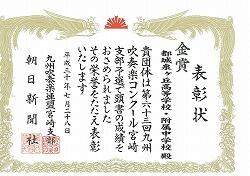 表彰状
金賞
都城泉ヶ丘高等学校・附属中学校殿
貴団体は第六十三回九州
吹奏楽コンクール宮崎
支部予選で頭書の成績を
おさめられました
その栄誉をたたえ表彰
いたします
平成三十年七月二十八日
九州吹奏楽連盟宮崎支部
朝日新聞社